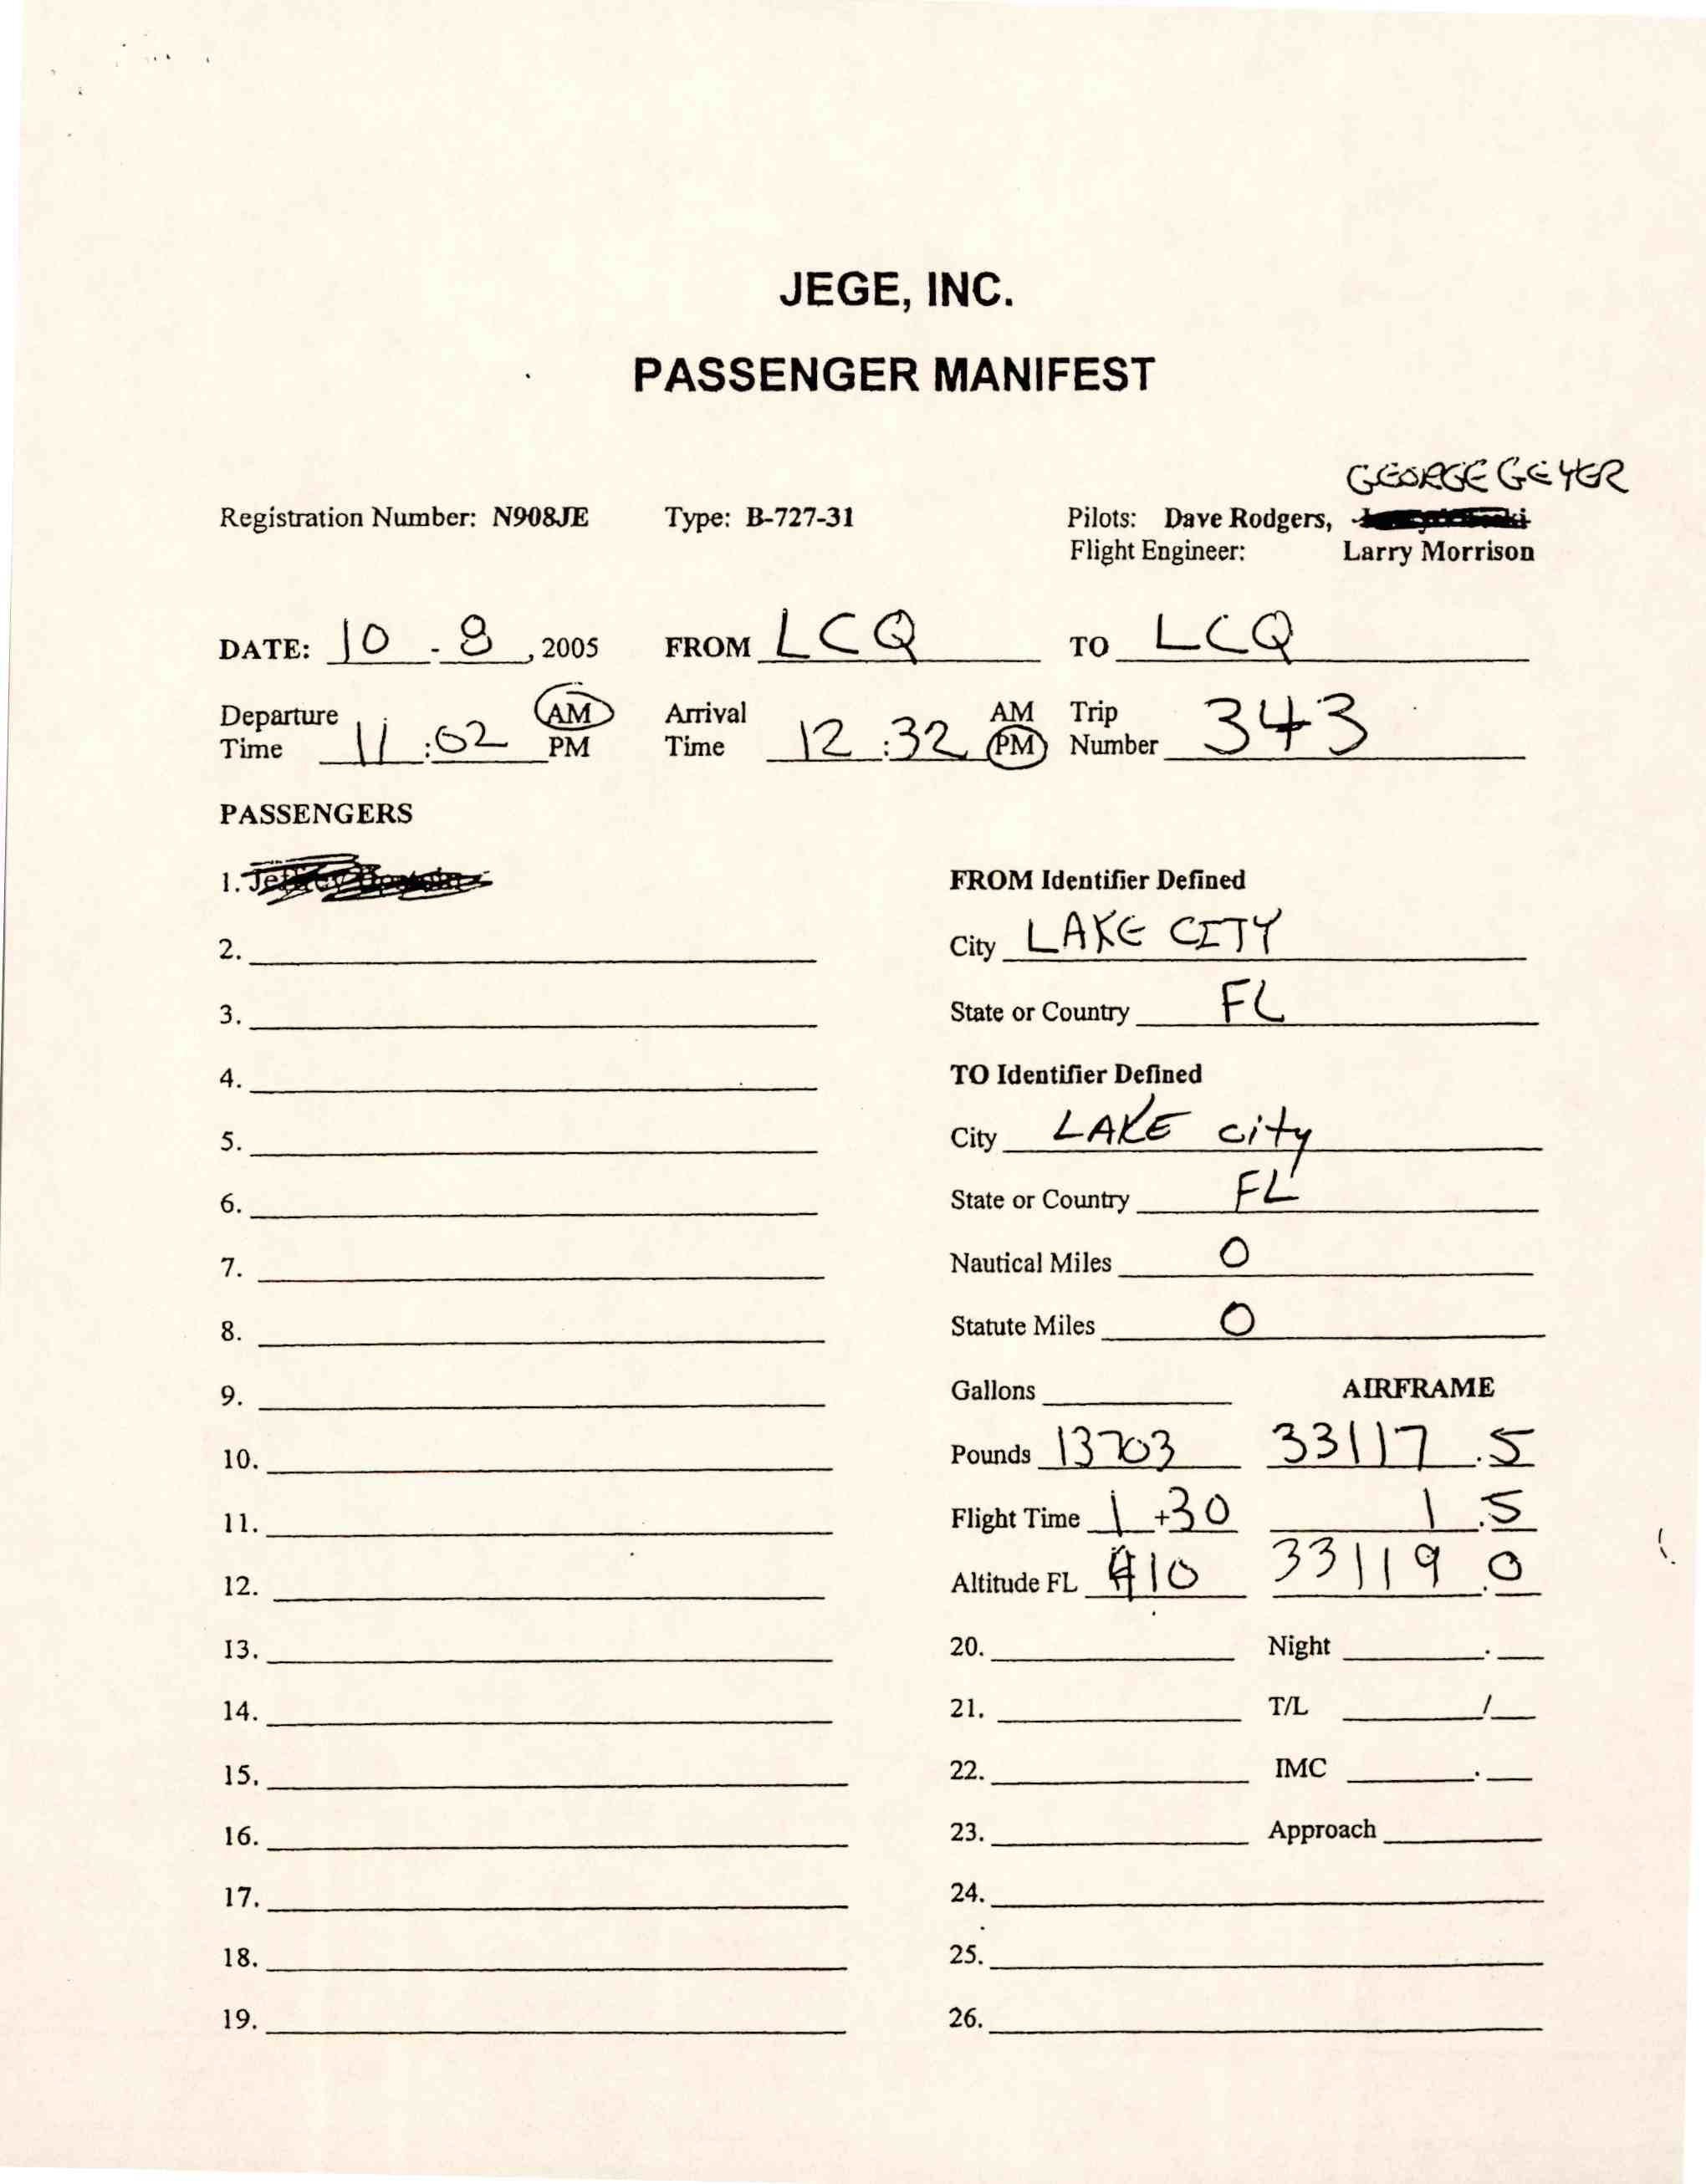 JEGE, INC.
PASSENGER MANIFEST
GEORGE GEYER
Registration Number: N908JE Type: B-727-31 Pilots: Dave Rodgers,
Flight Engineer: Larry Morrison
DATE: 10 - 8, 2005 FROM LCQ TO LCQ
Departure Time 11:02 AM PM Arrival Time 12:32 AM PM Trip Number 343
PASSENGERS
1. Jeffrey
FROM Identifier Defined
2.
City LAKE CITY
3.
State or Country FL
4.
TO Identifier Defined
5.
City LAKE city
6.
State or Country FL
7.
Nautical Miles 0
8.
Statute Miles 0
9.
Gallons AIRFRAME
10.
Pounds 13703 33117.5
11.
Flight Time 1+30 1.5
12.
Altitude FL 410 33119.0
13.
20. Night .
14.
21. T/L /
15.
22. IMC .
16.
23. Approach
17.
24.
18.
25.
19.
26.